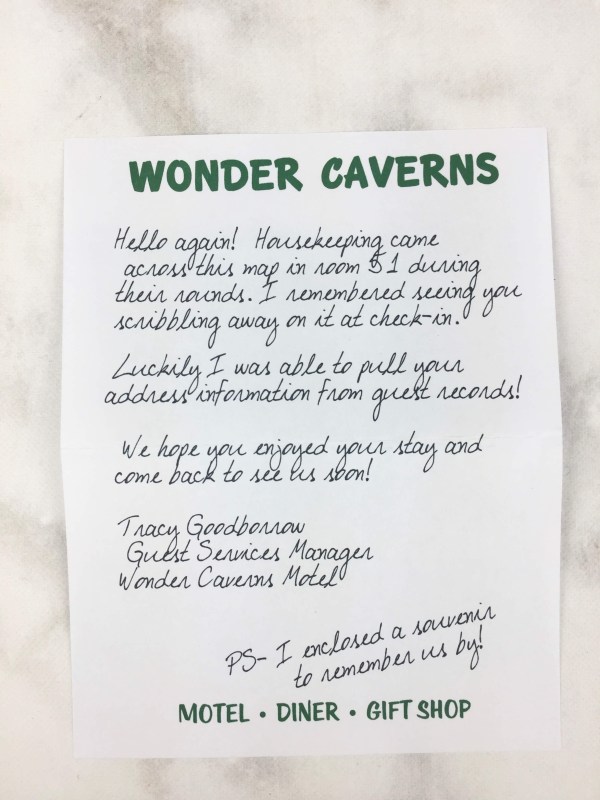 WONDER CAVERNS
Hello again! Housekeeping came
across this map in room 51 during
their rounds. I remembered seeing you
scribbling away on it at check-in.
Luckily I was able to pull your
address information from guest records!
We hope you enjoyed your stay and
come back to see us soon!
Tracy Goodborrow
Guest Services Manager
Wonder Caverns Motel
PS- I enclosed a souvenir
to remember us by!
MOTEL • DINER • GIFT SHOP